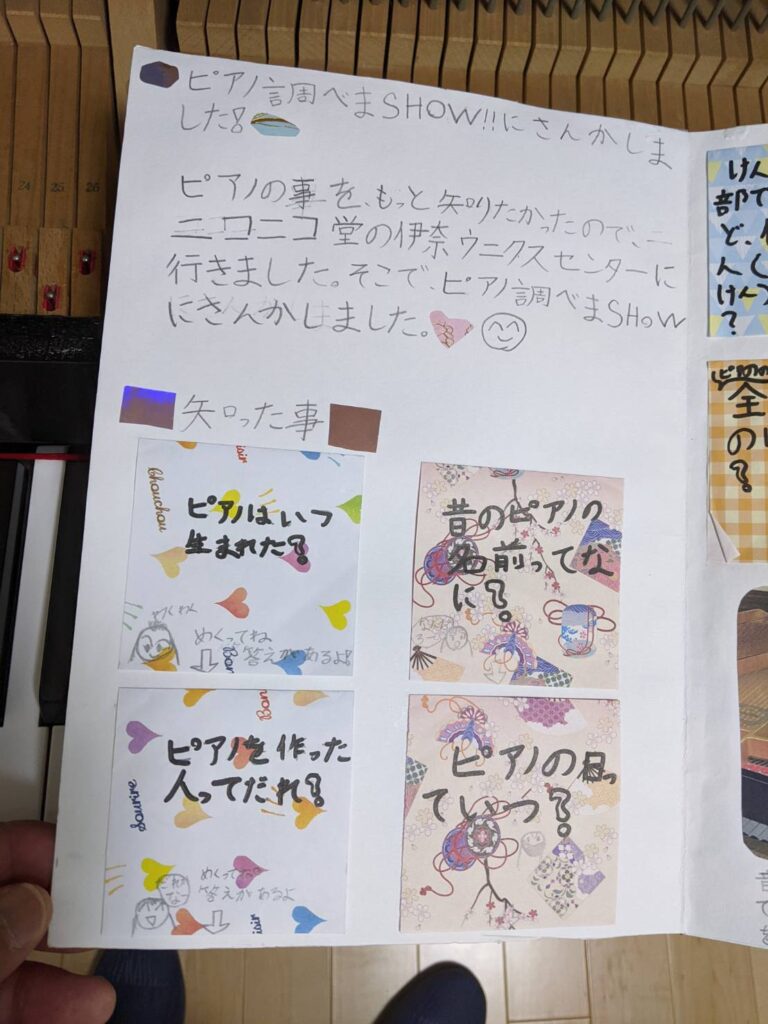 ピアノ調べまSHOW!!にさんかしま
した!
ピアノの事を、もっと知りたかったので、ニ
ニコニコ堂の伊奈ウニクスセンターに
行きました。そこで、ピアノ調べまSHOW
にさんかしました。
知った事
Chouchou
ピアノはいつ
生まれた?
めくってね
答えがあるよ!
昔のピアノの
名前ってな
に?
Sourire
ピアノを作った
人ってだれ?
めくってね
答えがあるよ
ピアノの日っ
ていつ?
けん
部で
ど、
んく
けん
?
全
のに
?
24 25 26